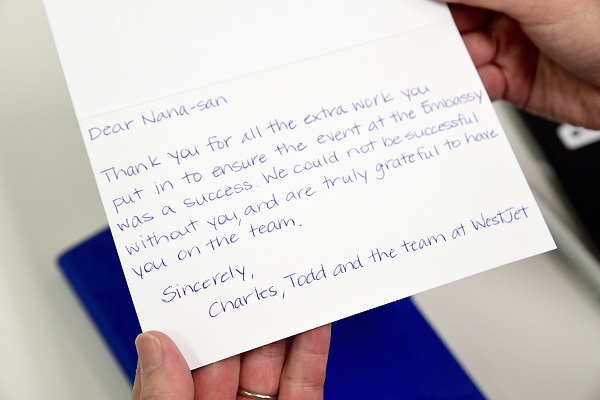 Dear Nana-san
Thank you for all the extra work you
put in to ensure the event at the Embassy
was a success. We could not be successful
without you, and are truly grateful to have
you on the team.
Sincerely,
Charles, Todd and the team at WestJet